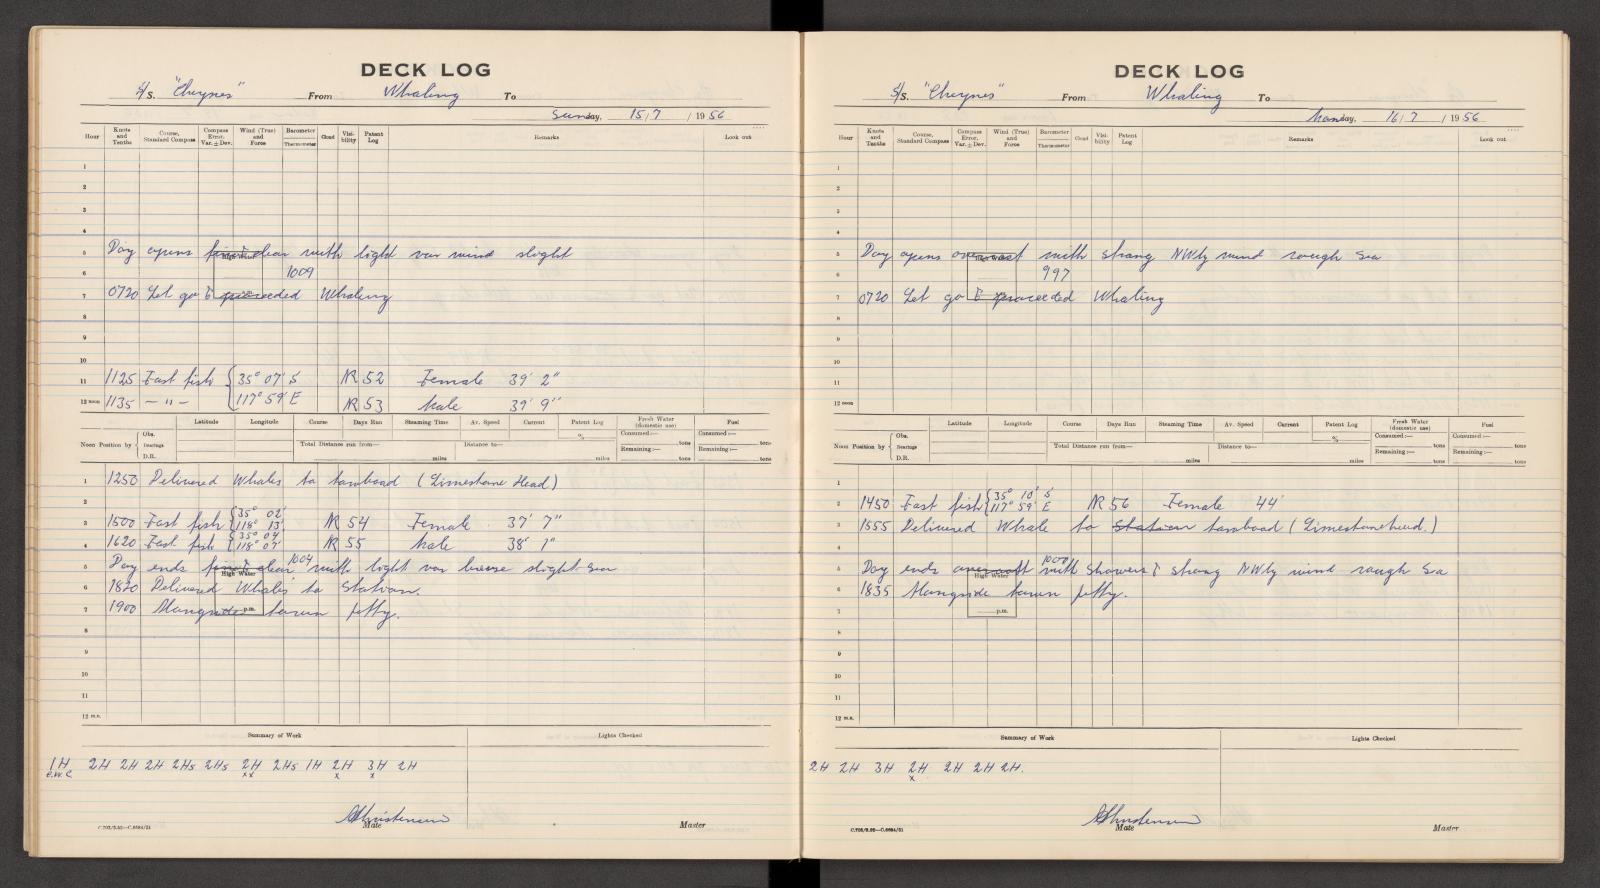 DECK LOG
S/S. "Cheynes" From Whaling To
Sunday, 15/7/1956
Hour Knots and Tenths Course, Standard Compass Compass Error. Var. ± Dev. Wind (True) and Force Barometer Thermometer Cloud Visibility Patent Log Remarks Look out
1
2
3
4
5 Day opens fine & clear with light var wind slight
High Water
6 1009
7 0720 Let go & proceeded Whaling
8
9
10
11 1125 Fast fish { 35° 07' S NR 52 Female 39' 2"
12 noon 1135 — " — 117° 59' E NR 53 Male 39' 9"
Latitude Longitude Course Days Run Steaming Time Av. Speed Current Patent Log Fresh Water (domestic use) Fuel
Noon Position by { Obs. Bearings D.R. Total Distance run from— miles Distance to— miles % Consumed:— tons Remaining:— tons Consumed:— tons Remaining:— tons
1 1250 Delivered Whales to towboad (Limestone Head)
2
3 1500 Fast fish { 35° 02' 118° 13' NR 54 Female 37' 7"
4 1620 Fast fish { 35° 04' 118° 07' NR 55 Male 38' 1"
5 Day ends fine & clear 1004 with light var breeze slight sea
High Water
6 1820 Delivered Whales to Station.
7 1900 Alongside town jetty.
p.m.
8
9
10
11
12 m.n.
Summary of Work Lights Checked
1H e.w.c 2H 2H 2H 2Hs 2Hs 2H xx 2Hs 1H 2H x 3H x 2H
AChristensen
Mate Master
DECK LOG
S/S. "Cheynes" From Whaling To
Monday, 16/7/1956
Hour Knots and Tenths Course, Standard Compass Compass Error. Var. ± Dev. Wind (True) and Force Barometer Thermometer Cloud Visibility Patent Log Remarks Look out
1
2
3
4
5 Day opens overcast with strong NWly wind rough sea
High Water
6 997
7 0720 Let go & proceeded Whaling
8
9
10
11
12 noon
Latitude Longitude Course Days Run Steaming Time Av. Speed Current Patent Log Fresh Water (domestic use) Fuel
Noon Position by { Obs. Bearings D.R. Total Distance run from— miles Distance to— miles % Consumed:— tons Remaining:— tons Consumed:— tons Remaining:— tons
1
2 1450 Fast fish { 35° 10' S 117° 59' E NR 56 Female 44'
3 1555 Delivered Whale to Station towboad (Limestonehead.)
4
5 Day ends overcast 1000 with showers & strong NWly wind rough sea
High Water
6 1835 Alongside town jetty.
7 p.m.
8
9
10
11
12 m.n.
Summary of Work Lights Checked
2H 2H 3H 2H x 2H 2H 2H.
AChristensen
Mate Master